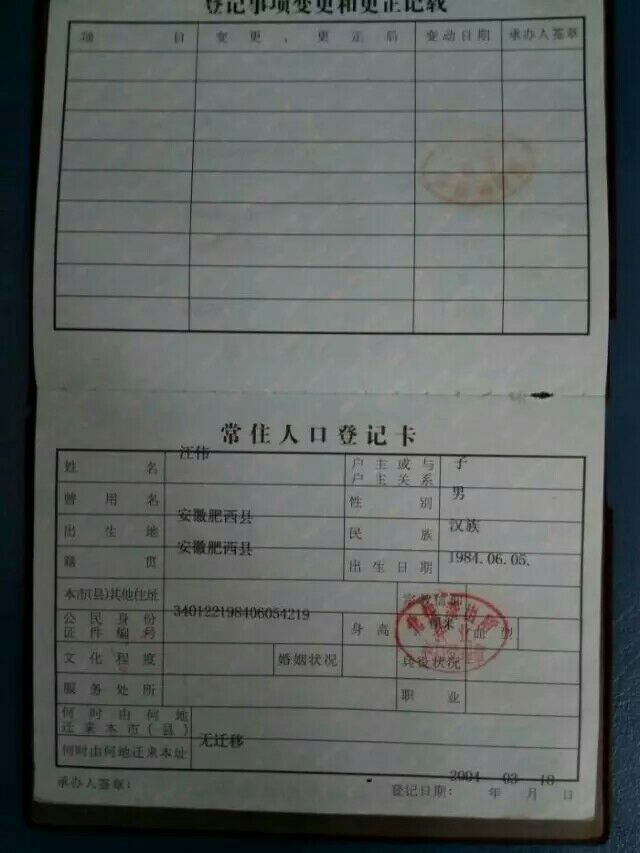 登记事项变更和更正记载
项 目 变更、更正后 变动日期 承办人签章
常住人口登记卡
姓 名 汪伟 户主或与户主关系 子
曾用名 性 别 男
出生地 安徽肥西县 民 族 汉族
籍 贯 安徽肥西县 出生日期 1984.06.05.
本市(县)其他住址 宗教信仰
公民身份证件编号 340122198406054219 身高 厘米 血型
文化程度 婚姻状况 兵役状况
服务处所 职业
何时由何地迁来本市(县)
何时由何地迁来本址 无迁移
承办人签章: 登记日期: 2004 年 03 月 18 日